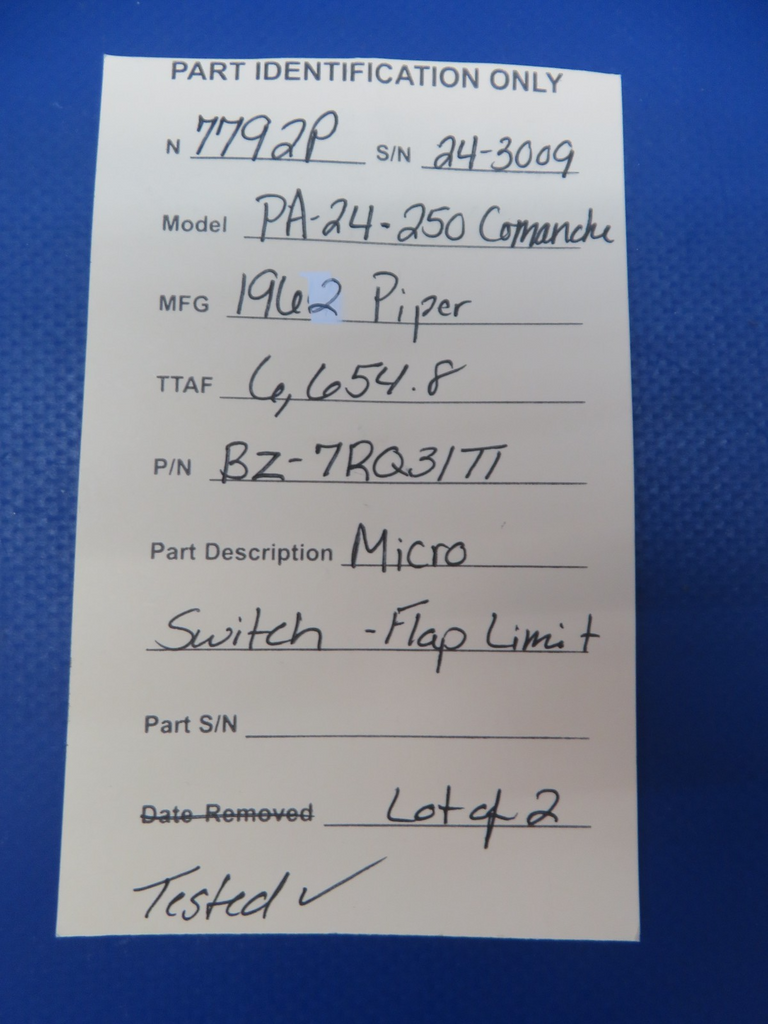 PART IDENTIFICATION ONLY
N 7792P S/N 24-3009
Model PA-24-250 Comanche
MFG 1962 Piper
TTAF 6,654.8
P/N BZ-7RQ31T1
Part Description Micro
Switch - Flap Limit
Part S/N
Date Removed Lot of 2
Tested ✓